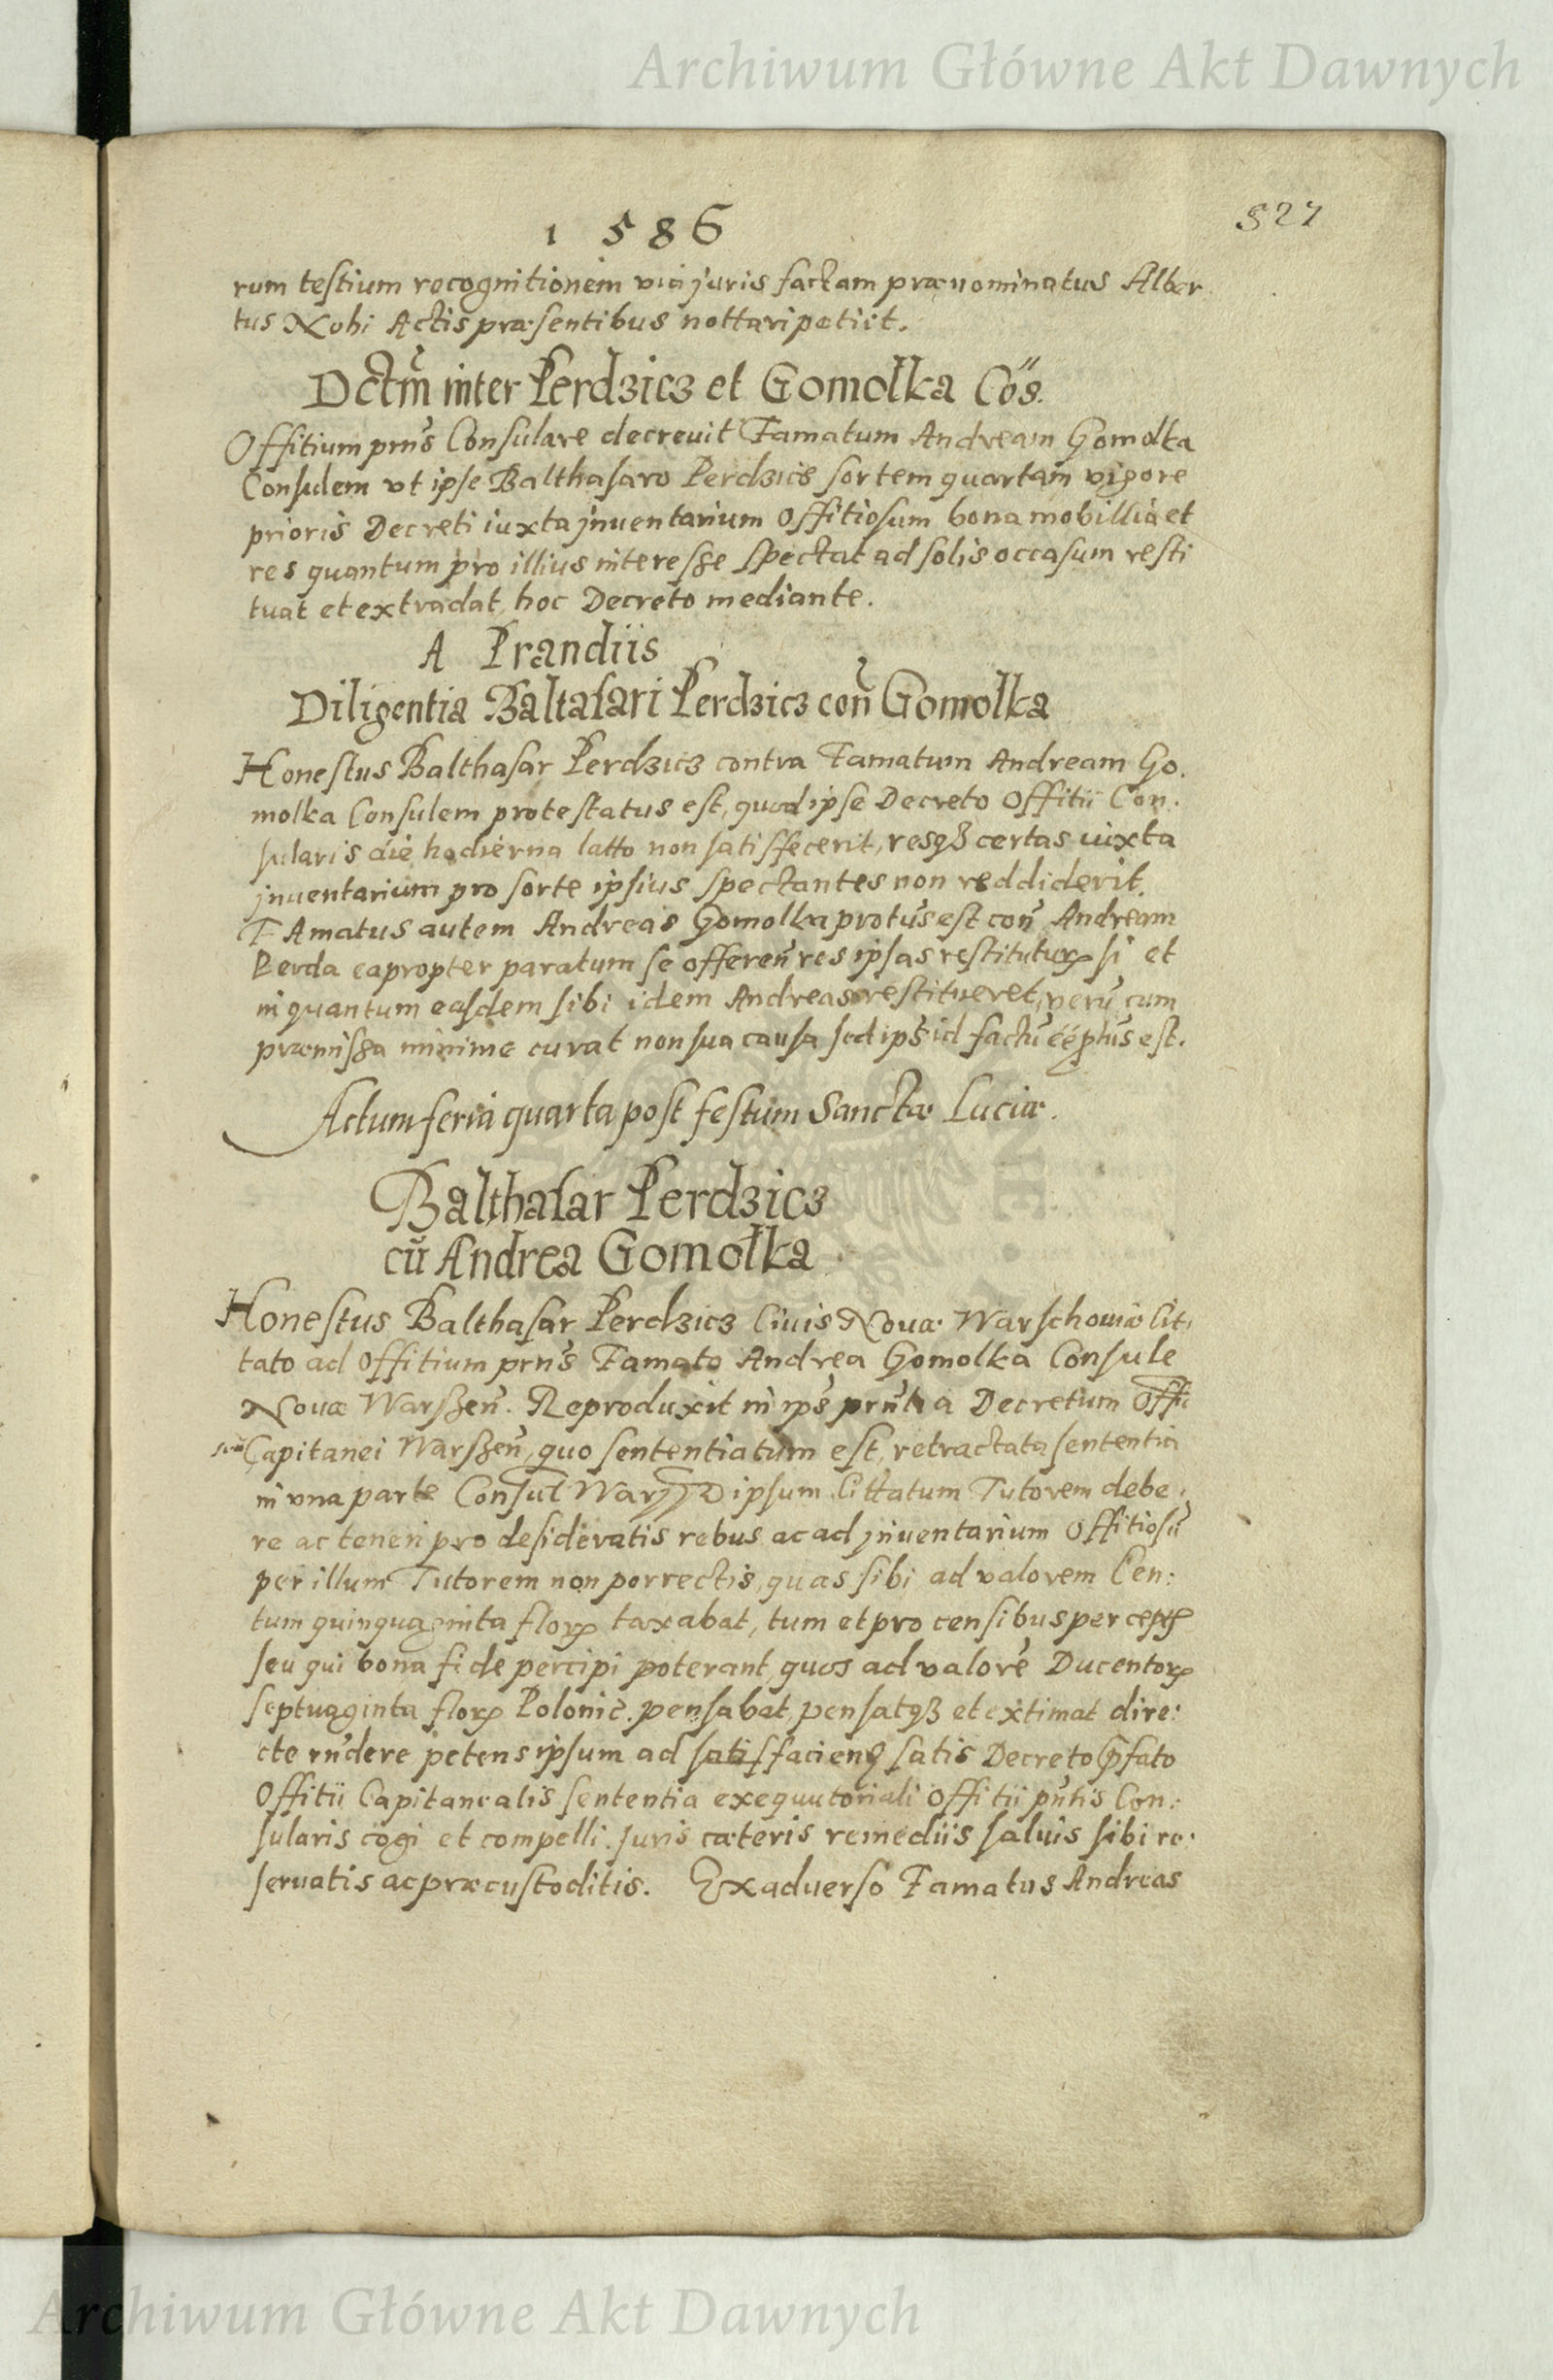 Archiwum Główne Akt Dawnych
1586
527
rum testium recognitionem via juris factam prænominatus Alber
tus Nohi Actis præsentibus nottari petiit.
Dctm̃ inter Perdzicz et Gomołka Cos̈.
Offitium prns̃ Consulare decreuit Famatum Andream Gomolka
Consulem vt ipse Balthasaro Perdzicz sortem quartam vigore
prioris Decreti iuxta jnuentarium Offitiosum bona mobillia et
res quantum pro illius interesse spectat ad solis occasum resti
tuat et extradat, hoc Decreto mediante.
A Prandiis
Diligentia Baltasari Perdzicz con̄ Gomolka
Honestus Balthasar Perdzicz contra Famatum Andream Go.
molka Consulem protestatus est, quod ipse Decreto Offitii Con.
sularis die hodierna latto non satisffecerit, resqȝ certas iuxta
jnuentarium pro sorte ipsius spectantes non reddiderit.
FAmatus autem Andreas Gomolka protũs est con̄ Andream
Perda eapropter paratum se offeren̄ res ipsas restituturꝝ si et
in quantum easdem sibi idem Andreas restitueret, verũ cum
præmissa minime curat non sua causa sed ips̃ id factũ éé ptũs est.
Actum feria quarta post festum Sanctæ Luciæ.
Balthasar Perdzicz
cũ Andrea Gomołka
Honestus Balthasar Perdzicz Ciuis Nouæ Warschouiæ Cit,
tato ad Offitium prns̃ Famato Andrea Gomolka Consule
Nouæ Warszen̄. Reproduxit in ips̃ prnt̃ia Decretum Offi
Capitanei Warszen̄, quo sententiatum est, retractata sententia
in vna parte Consul War ipsum Cittatum Tutorem debe,
re ac teneri pro desideratis rebus ac ad jnuentarium Offitiosũ
per illum Tutorem non porrectis, quas sibi ad valorem Cen:
tum quinquaginta florꝝ taxabat, tum et pro censibus perceptꝭ
seu qui bona fide percipi poterant, quos ad valorẽ Ducentorꝝ
septuaginta florꝝ Polonic̃. pensabat, pensatqȝ et extimat dire:
cte rñdere petens ipsum ad satisfacienđ satis Decreto p̃fato
Offitii Capitanealis sententia exequutoriali Offitii pñtis Con:
sularis cogi et compelli. Juris cæteris remediis saluis sibi re:
seruatis ac præcustoditis. Ex aduerso Famatus Andreas
Archiwum Główne Akt Dawnych